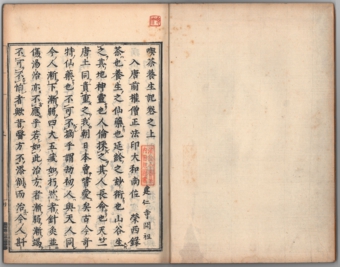 喫茶養生記卷之上
建仁寺開祖
入唐前權僧正法印大和尚位 榮西錄
茶也養生之仙藥也延齡之妙術也山谷生
之其地神靈也人倫採之其人長命也天竺
唐土同貴重之我朝日本曾嗜愛矣古今奇
特仙藥也不可不摘乎謂劫初人與天人同
今人漸下漸弱四大五臟如朽然者針灸並
傷湯治亦不應乎若如此治方者漸弱漸竭
不可不怕者歟昔醫方不添削而治今人斟